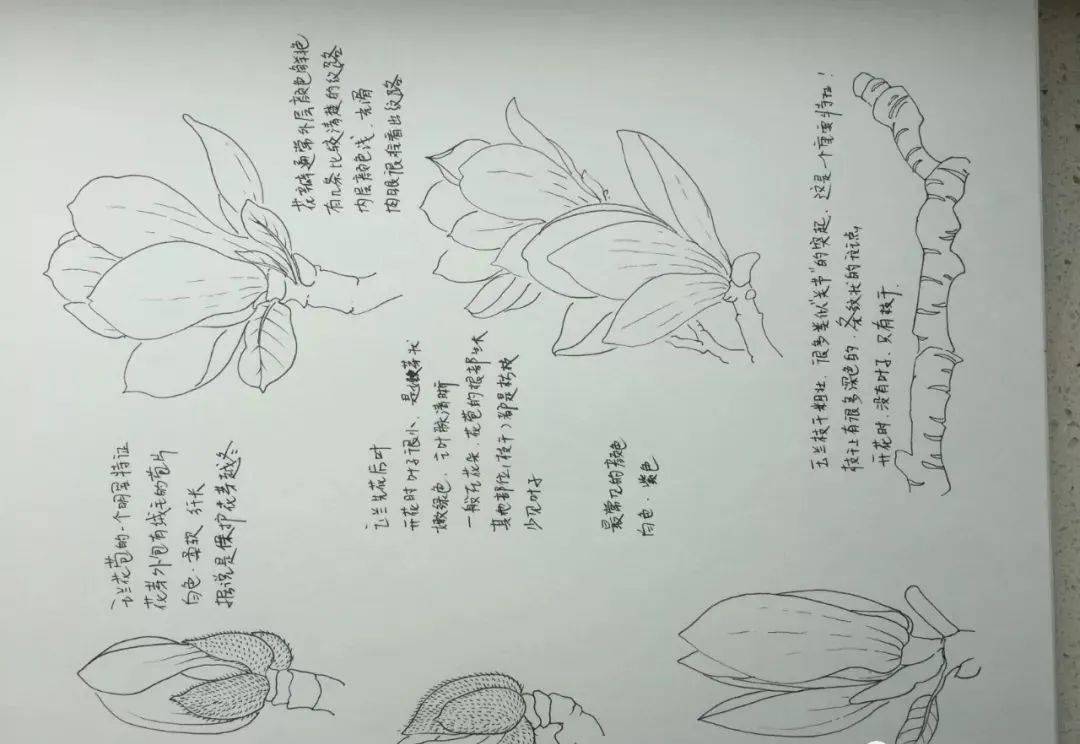 花瓣通常外层颜色鲜艳
有几条比较清楚的纹路
内层颜色浅、光滑
肉眼很难看出纹路
玉兰枝干粗壮，很多类似"关节"的突起，这是一个重要特征！
枝干上有很多深色的、条纹状的斑点，
开花时，没有叶子，只有枝干.
玉兰先花后叶
开花时叶子很小、是嫩芽状
嫩绿色、叶脉清晰
一般在花朵、花苞的根部少状
其他部位（枝干）都是枯枝
少见叶子
最常见的颜色
白色、紫色
玉兰花苞的一个明显特征
花芽外包有绒毛的苞片
白色、柔软、纤长
据说是保护花芽越冬